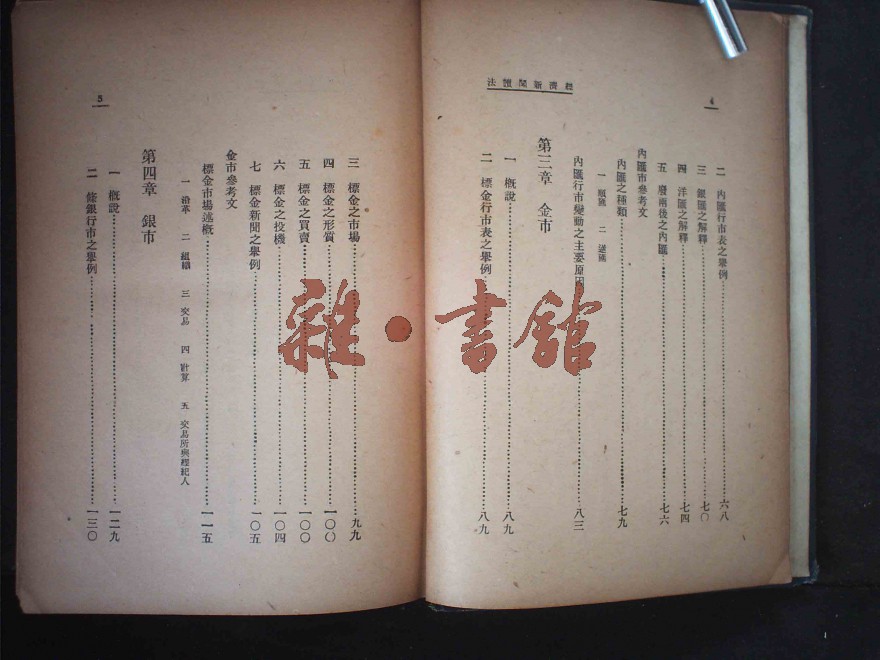 經濟新聞讀法
4
二　內匯行市表之舉例……六八
三　銀匯之解釋……七〇
四　洋匯之解釋……七四
五　廢兩後之內匯……七六
內匯市參考文
內匯之種類……七九
一　順匯　二　逆匯
內匯行市變動之主要原因……八三
第三章　金市
一　概說……八九
二　標金行市表之舉例……八九
5
三　標金之市場……九九
四　標金之形質……一〇〇
五　標金之買賣……一〇〇
六　標金之投機……一〇四
七　標金新聞之舉例……一〇五
金市參考文
標金市場述概……一一五
一　沿革　二　組織　三　交易　四　計算　五　交易所與經紀人
第四章　銀市
一　概說……一二九
二　條銀行市之舉例……一三〇
雜·書館